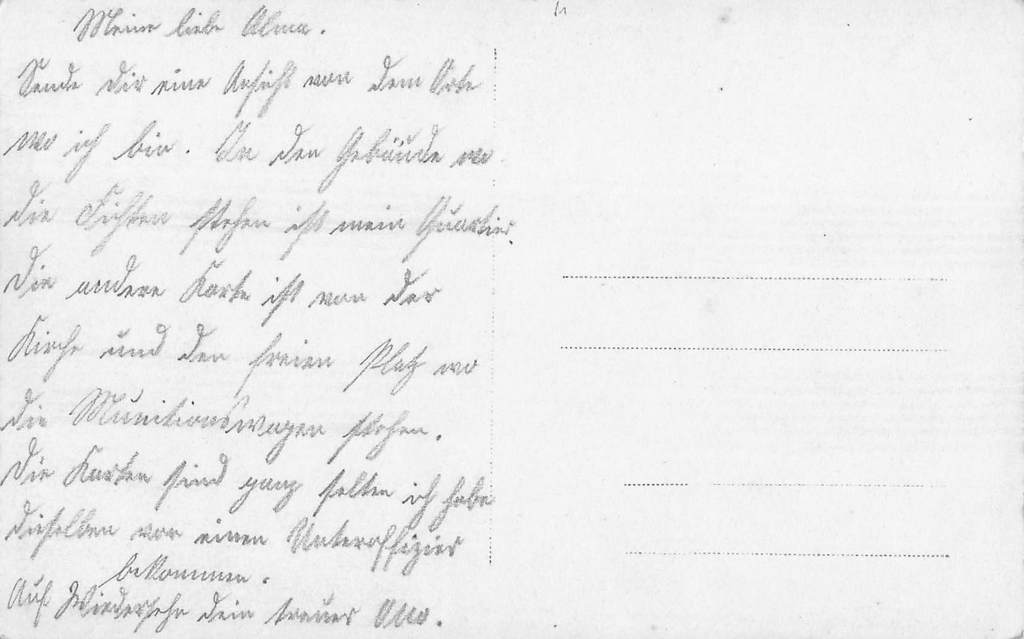 Meine liebe Alma.
Sende dir eine Ansicht von dem Orte
wo ich bin. In den Gebäude wo
die Fichten stehen ist mein Quartier.
Die andere Karte ist von der
Kirche und den freien Platz wo
die Munitionswagen stehen.
Die Karten sind ganz selten ich habe
dieselben von einen Unteroffizier
bekommen.
Auf Wiedersehn dein treuer Otto.